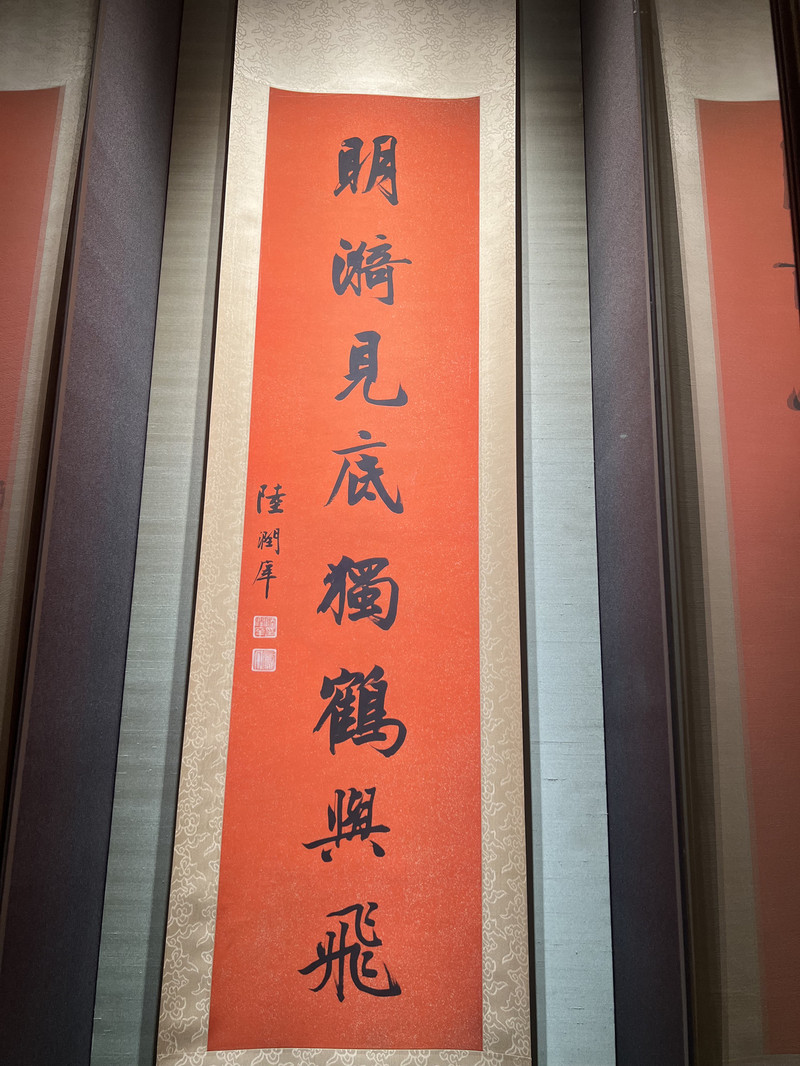 明漪見底獨鶴與飛
陸潤庠